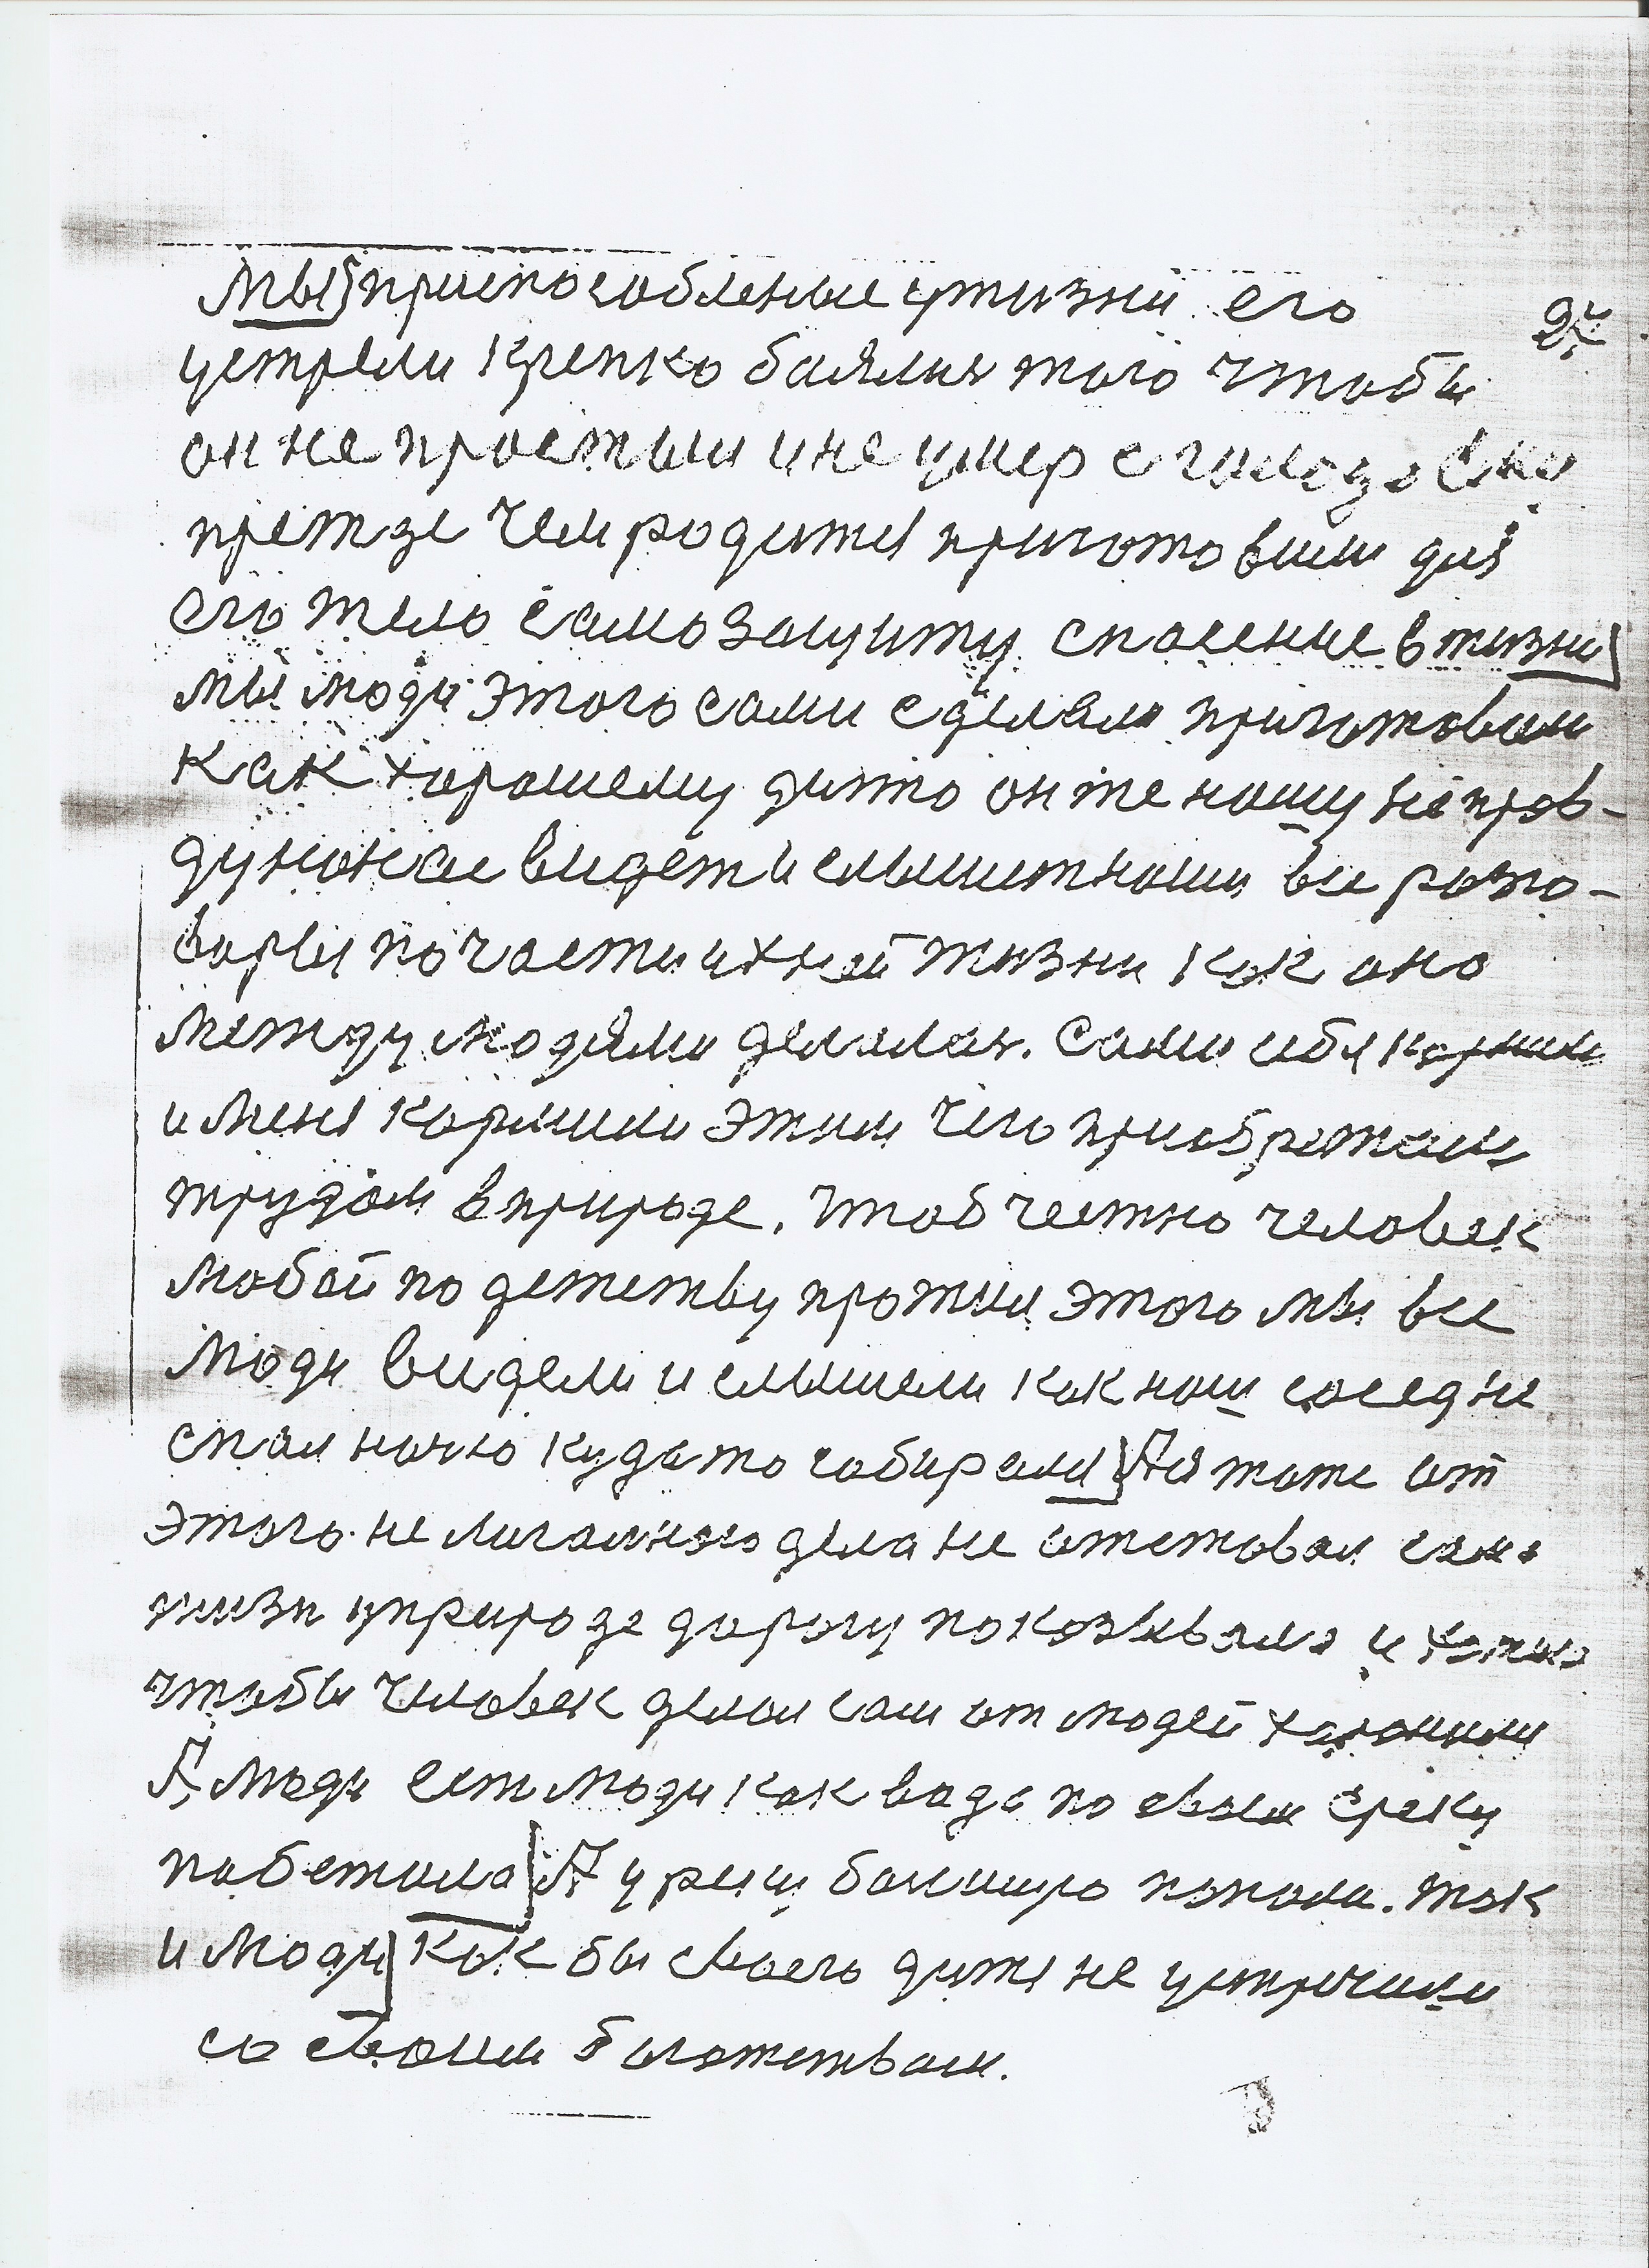 Мы приспособленые ужизни его
2й
устрели крепко баялися того чтобы
он не простыл и не умер с голоду
претзе чем родителя приготовили для
его тело самозащиту спасение в жизни
мы люди этого сами сделали приготовили
как хорошему дитю он же нашу неправ-
ду нюнсе видет и слышит наши все разго-
воры по части ихней жизни как оно
между людями делалася. Сами ибя кормили
и меня кормили этим чего приобретали
трудом в природе. Чтоб честно человек
любой по детству против этого мы все
люди видели и слышели как наш сосед не
спал ночю куда то собирался А я тоже от
этого не лигального дела не отстовал сама
жизн уприроде дорогу показывала и
чтобы человек делал сам от людей хоронили
А люди ест люди как вода по своём ереку
побежила А у реки большую попала. Так
и люди как бы своего дитя не устречали
со своим богатством.